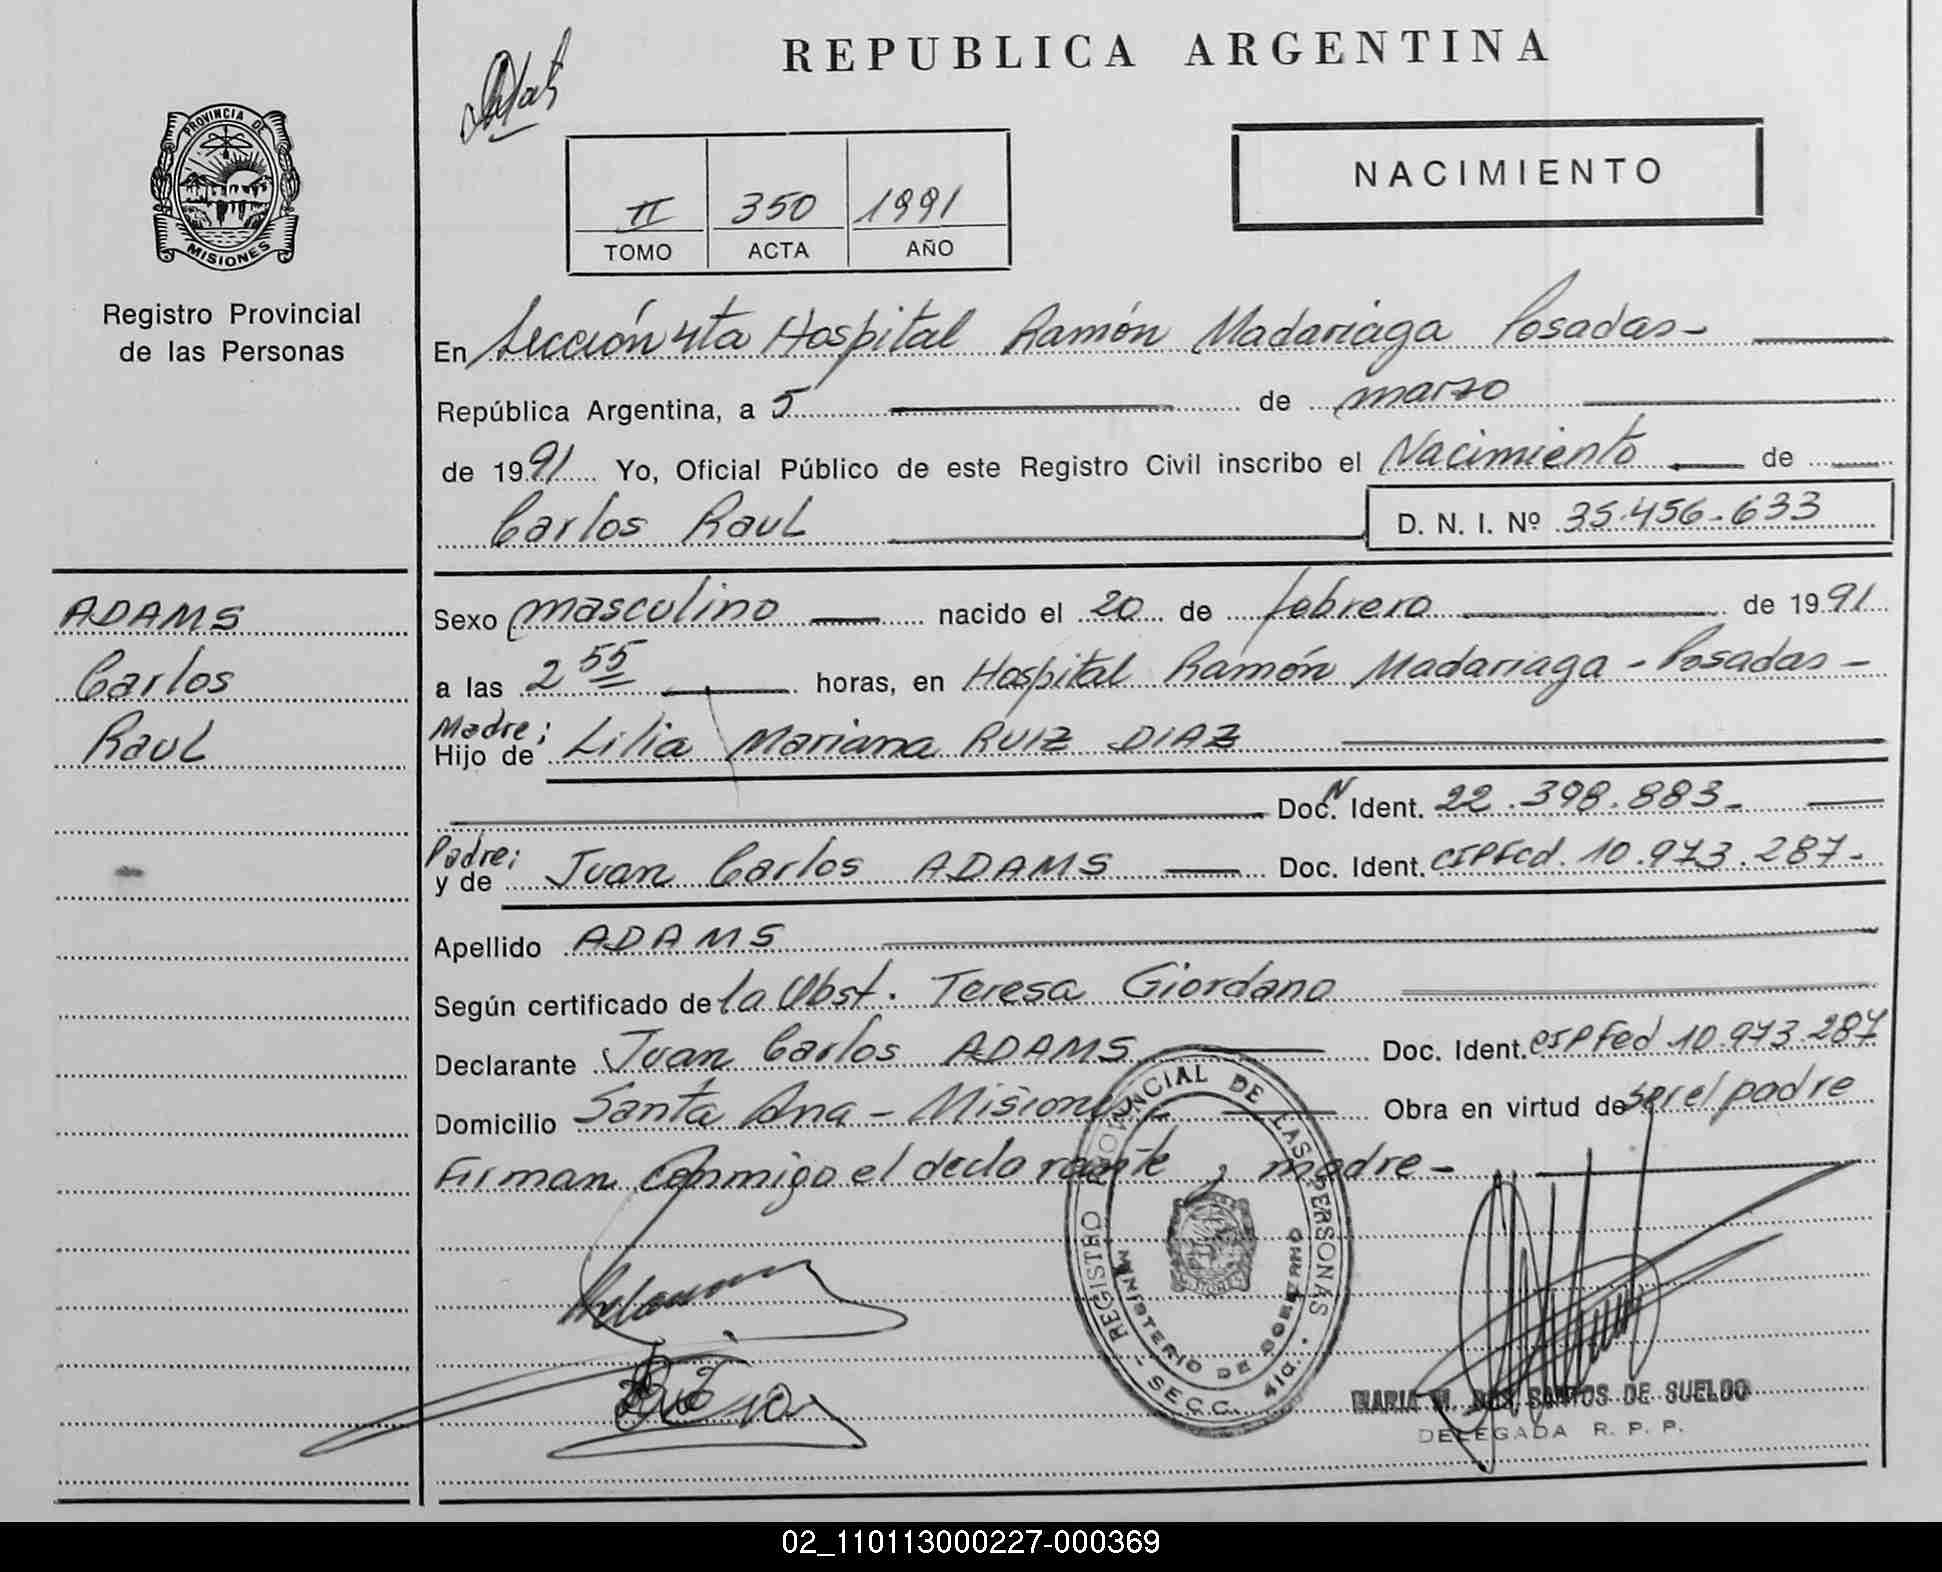 REPUBLICA ARGENTINA
PROVINCIA DE
MISIONES
Registro Provincial
de las Personas
NACIMIENTO
II 350 1991
TOMO ACTA AÑO
En Sección 4ta Hospital Ramón Madariaga Posadas-
República Argentina, a 5 de marzo
de 1991 Yo, Oficial Público de este Registro Civil inscribo el Nacimiento de
Carlos Raul D. N. I. Nº 35.456.633
ADAMS
Carlos
Raul
Sexo masculino nacido el 20 de febrero de 1991
a las 2 55 horas, en Hospital Ramón Madariaga - Posadas -
Madre:
Hijo de Lilia Mariana RUIZ DIAZ
Doc. N Ident. 22.398.883-
Padre:
y de Juan Carlos ADAMS Doc. Ident. CIPFed. 10.973.287-
Apellido ADAMS
Según certificado de la Obst. Teresa Giordano
Declarante Juan Carlos ADAMS Doc. Ident. CIPFed 10.973.287
Domicilio Santa Ana - Misiones Obra en virtud de ser el padre
Firman conmigo el declarante y madre-
REGISTRO PROVINCIAL DE LAS PERSONAS
MINISTERIO DE GOBIERNO
SECC. 4ta.
MARIA M. DOS SANTOS DE SUELDO
DELEGADA R. P. P.
02_110113000227-000369